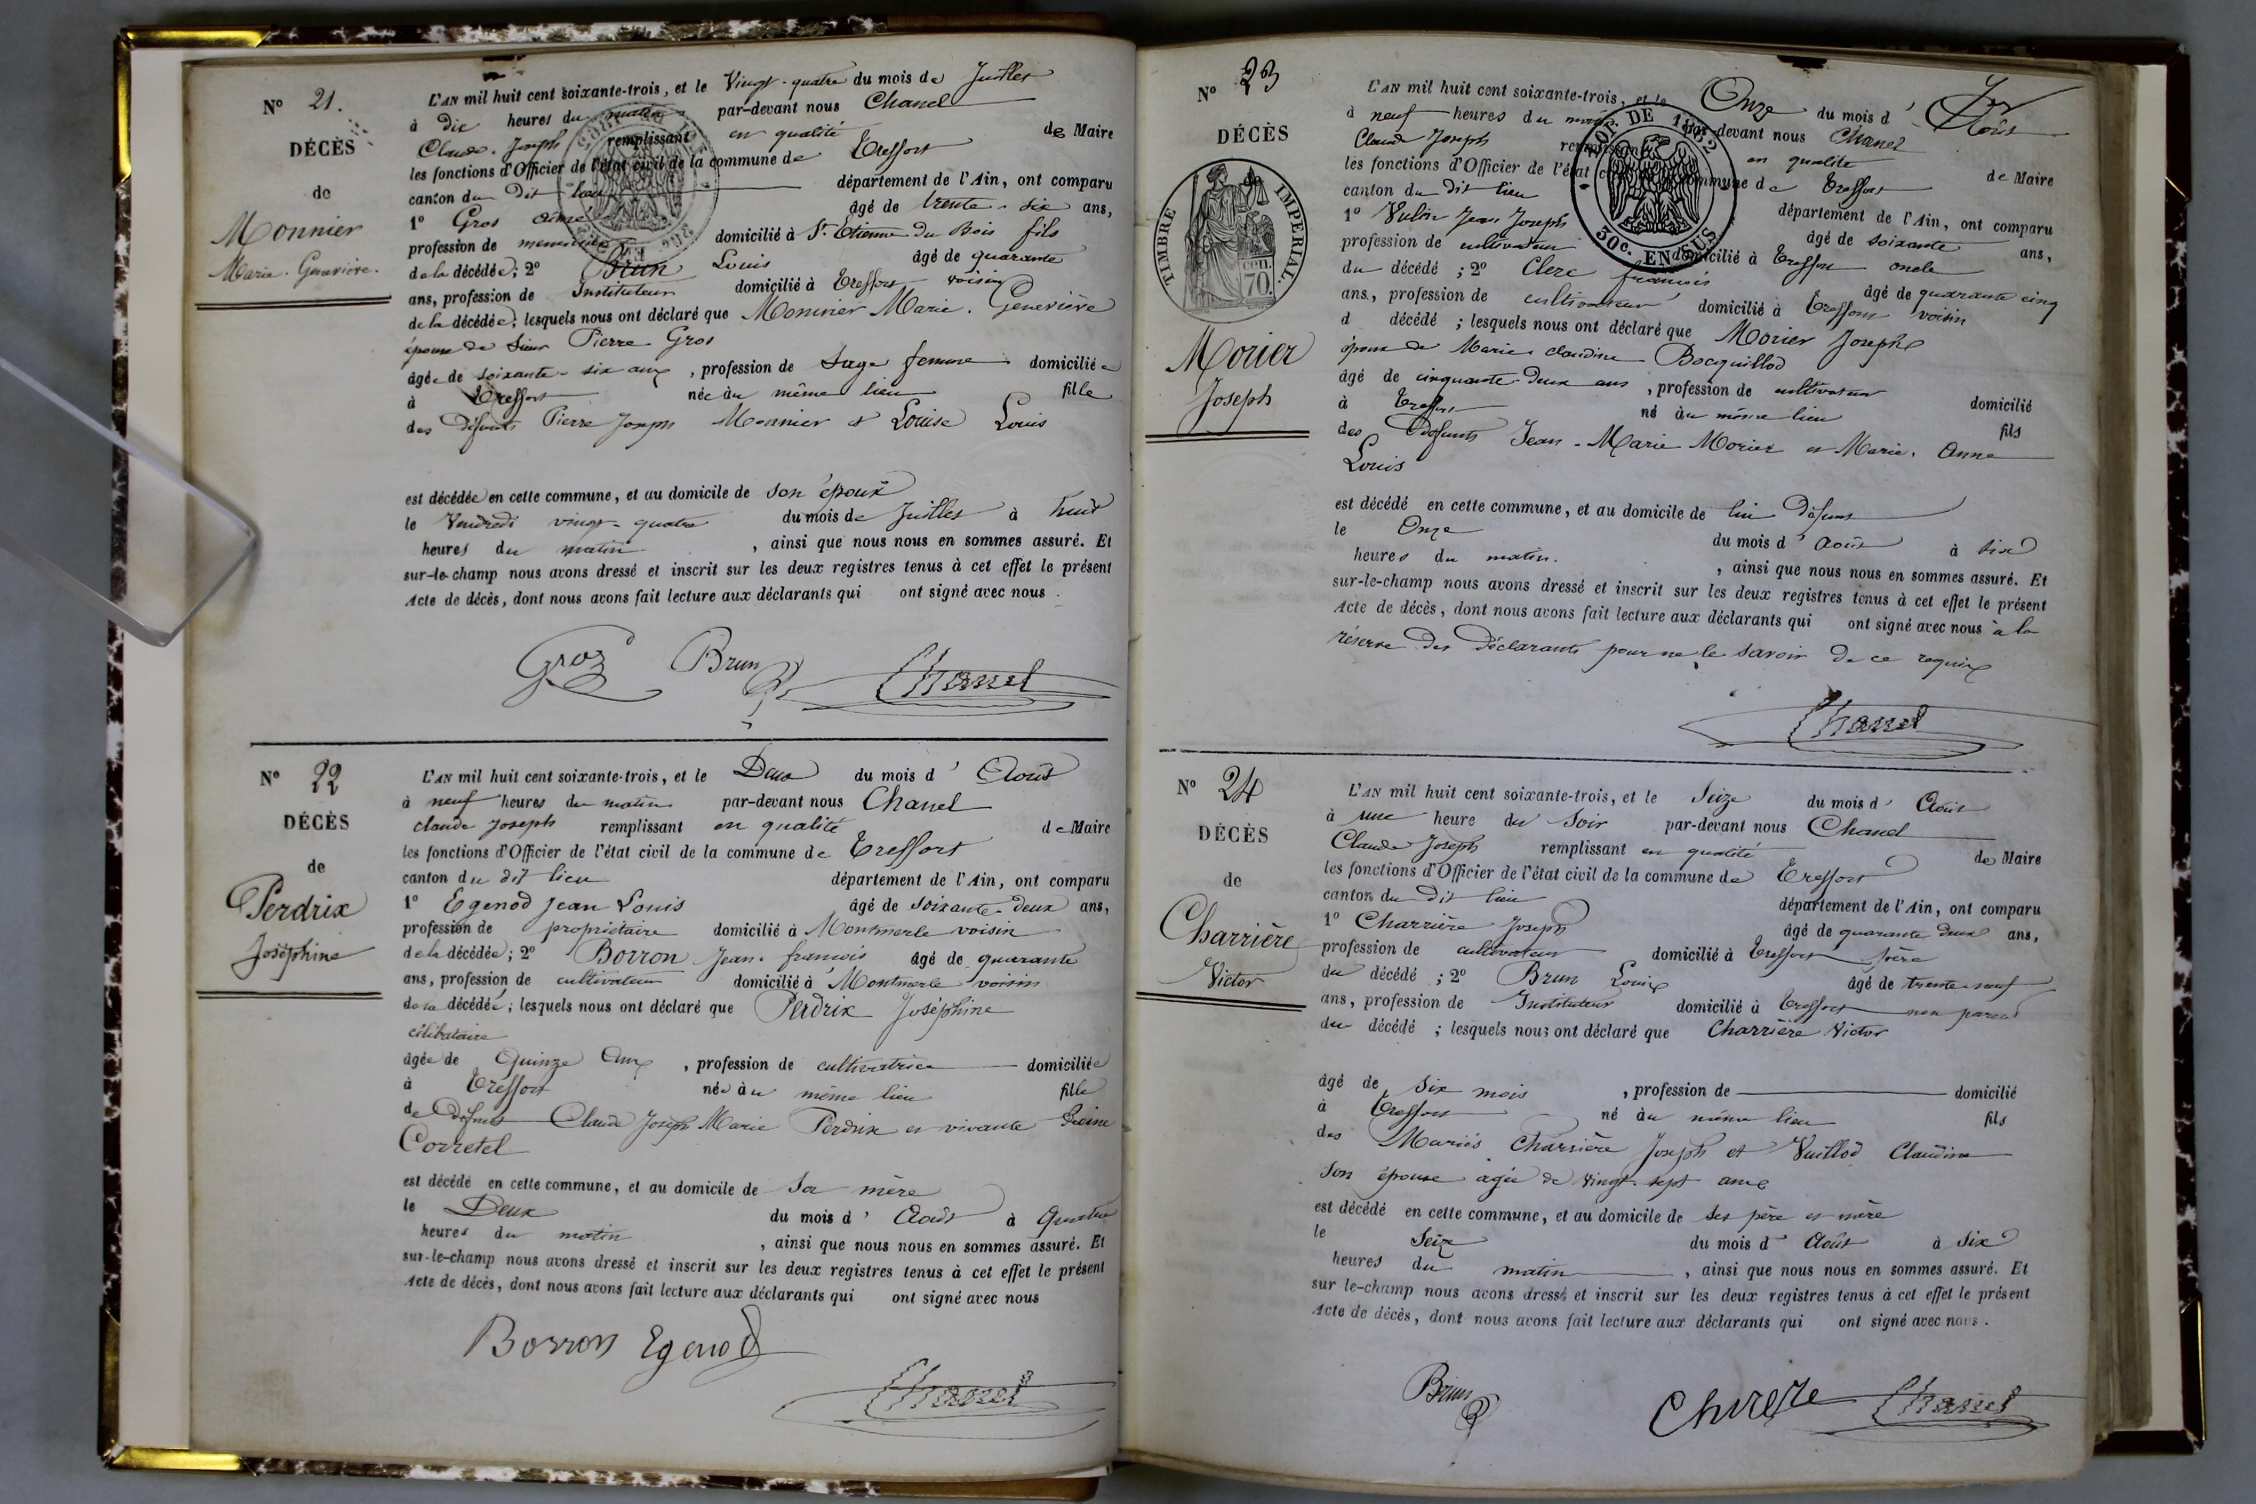 N° 21.
DÉCÈS
de
Monnier
Marie. Genevière.
L'AN mil huit cent soixante-trois, et le Vingt-quatre du mois de Juillet
à dix heures du matin par-devant nous Chanel
Claude. Joseph remplissant en qualité de Maire
les fonctions d'Officier de l'état civil de la commune de Treffort
canton du dit lieu département de l'Ain, ont comparu
1° Gros aimé âgé de trente-six ans,
profession de menuisier domicilié à St Etienne du Bois fils
de la décédée; 2° Brun Louis âgé de quarante
ans, profession de Instituteur domicilié à Treffort voisin
de la décédée; lesquels nous ont déclaré que Monnier Marie. Genevière
épouse de sieur Pierre Gros
âgée de soixante-six ans, profession de Sage femme domiciliée
à Treffort née au même lieu fille
des défunts Pierre Joseph Monnier et Louise Louis
est décédée en cette commune, et au domicile de son époux
le Vendredi vingt-quatre du mois de Juillet à huit
heures du matin, ainsi que nous nous en sommes assuré. Et
sur-le-champ nous avons dressé et inscrit sur les deux registres tenus à cet effet le présent
Acte de décès, dont nous avons fait lecture aux déclarants qui ont signé avec nous.
Groz Brun Chanel
N° 22
DÉCÈS
de
Perdrix
Joséphine
L'AN mil huit cent soixante-trois, et le Deux du mois d' Août
à neuf heures du matin par-devant nous Chanel
claude Joseph remplissant en qualité de Maire
les fonctions d'Officier de l'état civil de la commune de Treffort
canton du dit lieu département de l'Ain, ont comparu
1° Egenod Jean Louis âgé de soixante-deux ans,
profession de propriétaire domicilié à Montmerle voisin
de la décédée; 2° Borron Jean-francois âgé de quarante
ans, profession de cultivateur domicilié à Montmerle voisin
de la décédée; lesquels nous ont déclaré que Perdrix Joséphine
célibataire
âgée de Quinze Ans, profession de cultivatrice domiciliée
à Treffort née au même lieu fille
de Défunt Claude Joseph Marie Perdrix et vivante Reine
Corretel
est décédé en cette commune, et au domicile de sa mère
le Deux du mois d' Août à Quatre
heures du matin, ainsi que nous nous en sommes assuré. Et
sur-le-champ nous avons dressé et inscrit sur les deux registres tenus à cet effet le présent
Acte de décès, dont nous avons fait lecture aux déclarants qui ont signé avec nous
Borron Egenod
Chanel
N° 23
DÉCÈS
de
TIMBRE IMPÉRIAL.
CEN.
70.
Morier
Joseph
LOI DE 1862
30c. EN SUS
L'AN mil huit cent soixante-trois, et le Onze du mois d' Août
à neuf heures du matin par-devant nous Chanel
Claude Joseph remplissant en qualité de Maire
les fonctions d'Officier de l'état civil de la commune de Treffort
canton du dit lieu département de l'Ain, ont comparu
1° Vulin Jean Joseph âgé de soixante ans,
profession de cultivateur domicilié à Treffort oncle
du décédé; 2° Clerc francois âgé de quarante cinq
ans, profession de cultivateur domicilié à Treffort voisin
d décédé; lesquels nous ont déclaré que Morier Joseph
époux de Marie claudine Bocquillod
âgé de cinquante-deux ans, profession de cultivateur domicilié
à Treffort né au même lieu fils
des Défunts Jean-Marie Morier et Marie. Anne
Louis
est décédé en cette commune, et au domicile de lui Défunt
le Onze du mois d' Août à six
heures du matin., ainsi que nous nous en sommes assuré. Et
sur-le-champ nous avons dressé et inscrit sur les deux registres tenus à cet effet le présent
Acte de décès, dont nous avons fait lecture aux déclarants qui ont signé avec nous à la
réserve des Déclarants pour ne le savoir de ce requis
Chanel
N° 24
DÉCÈS
de
Charrière
Victor
L'AN mil huit cent soixante-trois, et le Seize du mois d' Août
à une heure du Soir par-devant nous Chanel
Claude Joseph remplissant en qualité de Maire
les fonctions d'Officier de l'état civil de la commune de Treffort
canton du dit lieu département de l'Ain, ont comparu
1° Charrière Joseph âgé de quarante deux ans,
profession de cultivateur domicilié à Treffort père
du décédé; 2° Brun Louis âgé de trente-neuf
ans, profession de Instituteur domicilié à Treffort non parent
du décédé; lesquels nous ont déclaré que Charrière Victor
âgé de six mois, profession de domicilié
à Treffort né au même lieu fils
des Mariés Charrière Joseph et Vuillod Claudine
Son épouse agée de vingt-sept ans
est décédé en cette commune, et au domicile de ses père et mère
le Seize du mois d' Août à Six
heures du matin, ainsi que nous nous en sommes assuré. Et
sur le-champ nous avons dressé et inscrit sur les deux registres tenus à cet effet le présent
Acte de décès, dont nous avons fait lecture aux déclarants qui ont signé avec nous.
Brun Chanel